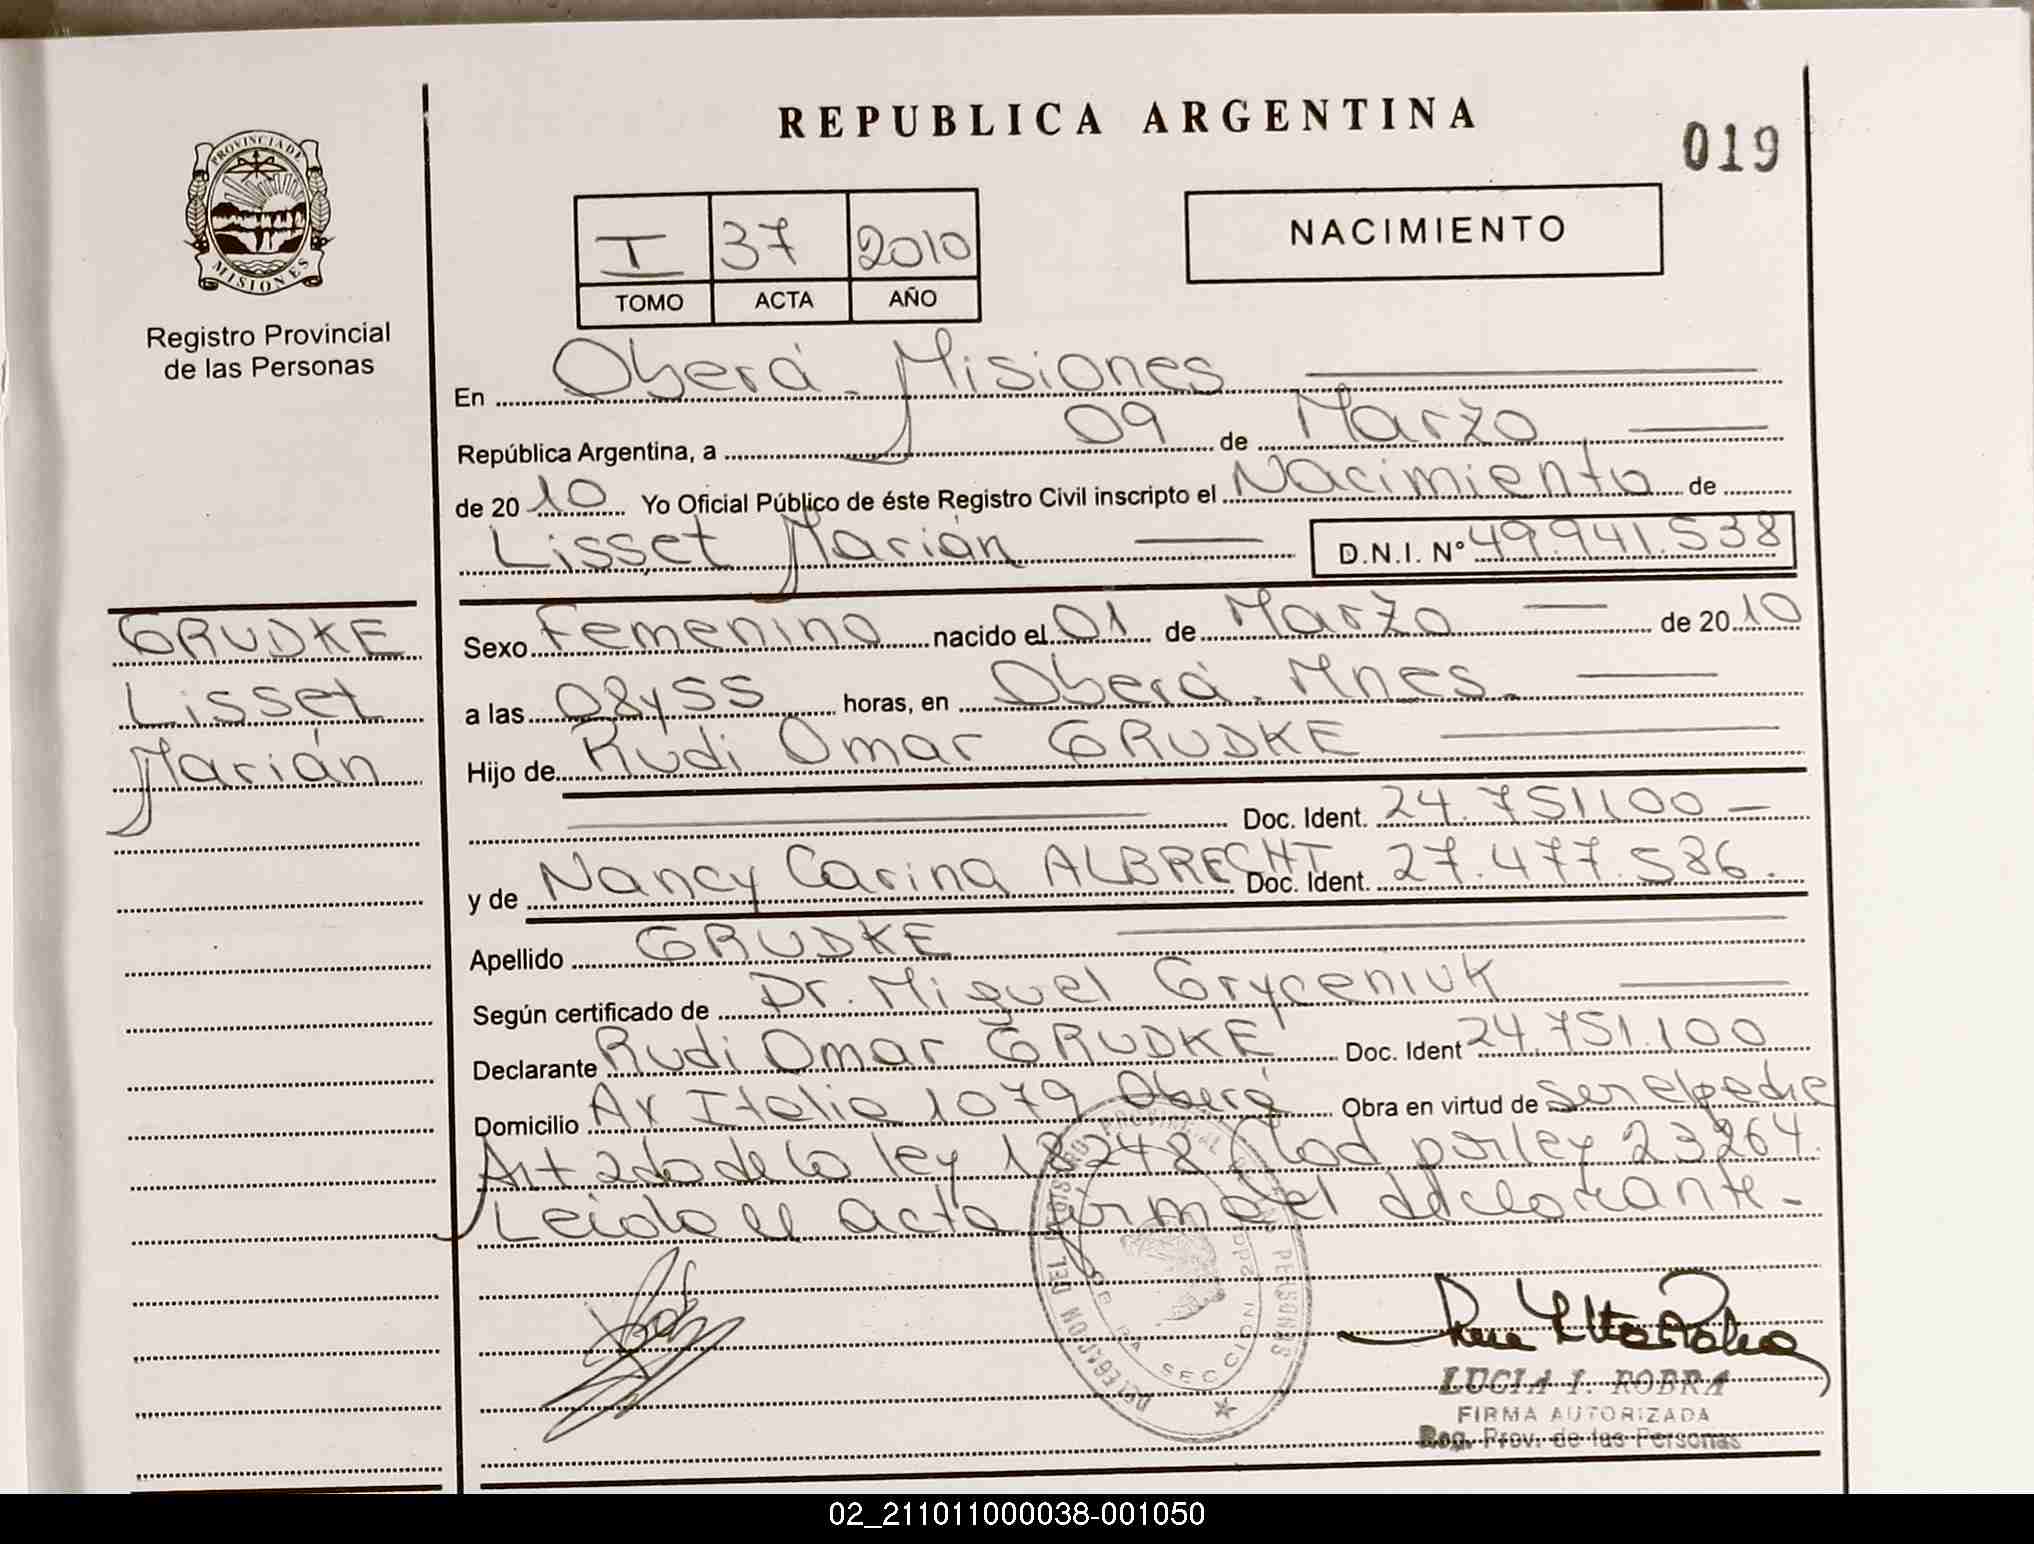 REPUBLICA ARGENTINA
019
PROVINCIA DE
MISIONES
Registro Provincial
de las Personas
I 37 2010
TOMO ACTA AÑO
NACIMIENTO
En Oberá - Misiones
República Argentina, a 09 de Marzo
de 2010 Yo Oficial Público de éste Registro Civil inscripto el Nacimiento de
Lisset Marián D.N.I. Nº 49.941.538
GRUDKE
Lisset
Marián
Sexo Femenino nacido el 01 de Marzo de 2010
a las 08y55 horas, en Oberá - Mnes.
Hijo de Rudi Omar GRUDKE
Doc. Ident. 24.751.100
y de Nancy Carina ALBRECHT Doc. Ident. 27.477.586.
Apellido GRUDKE
Según certificado de Dr. Miguel Gryceniuk
Declarante Rudi Omar GRUDKE Doc. Ident 24.751.100
Domicilio Av Italia 1079 Oberá Obra en virtud de ser el padre
Art 2do de la ley 18248 Mod por ley 23264.
Leida el acta firma el declarante-
DELEGACION DEL REGISTRO PROVINCIAL PERSONAS
SECCION 2da
LUCIA I. ROBRA
FIRMA AUTORIZADA
Reg. Prov. de las Personas
02_211011000038-001050